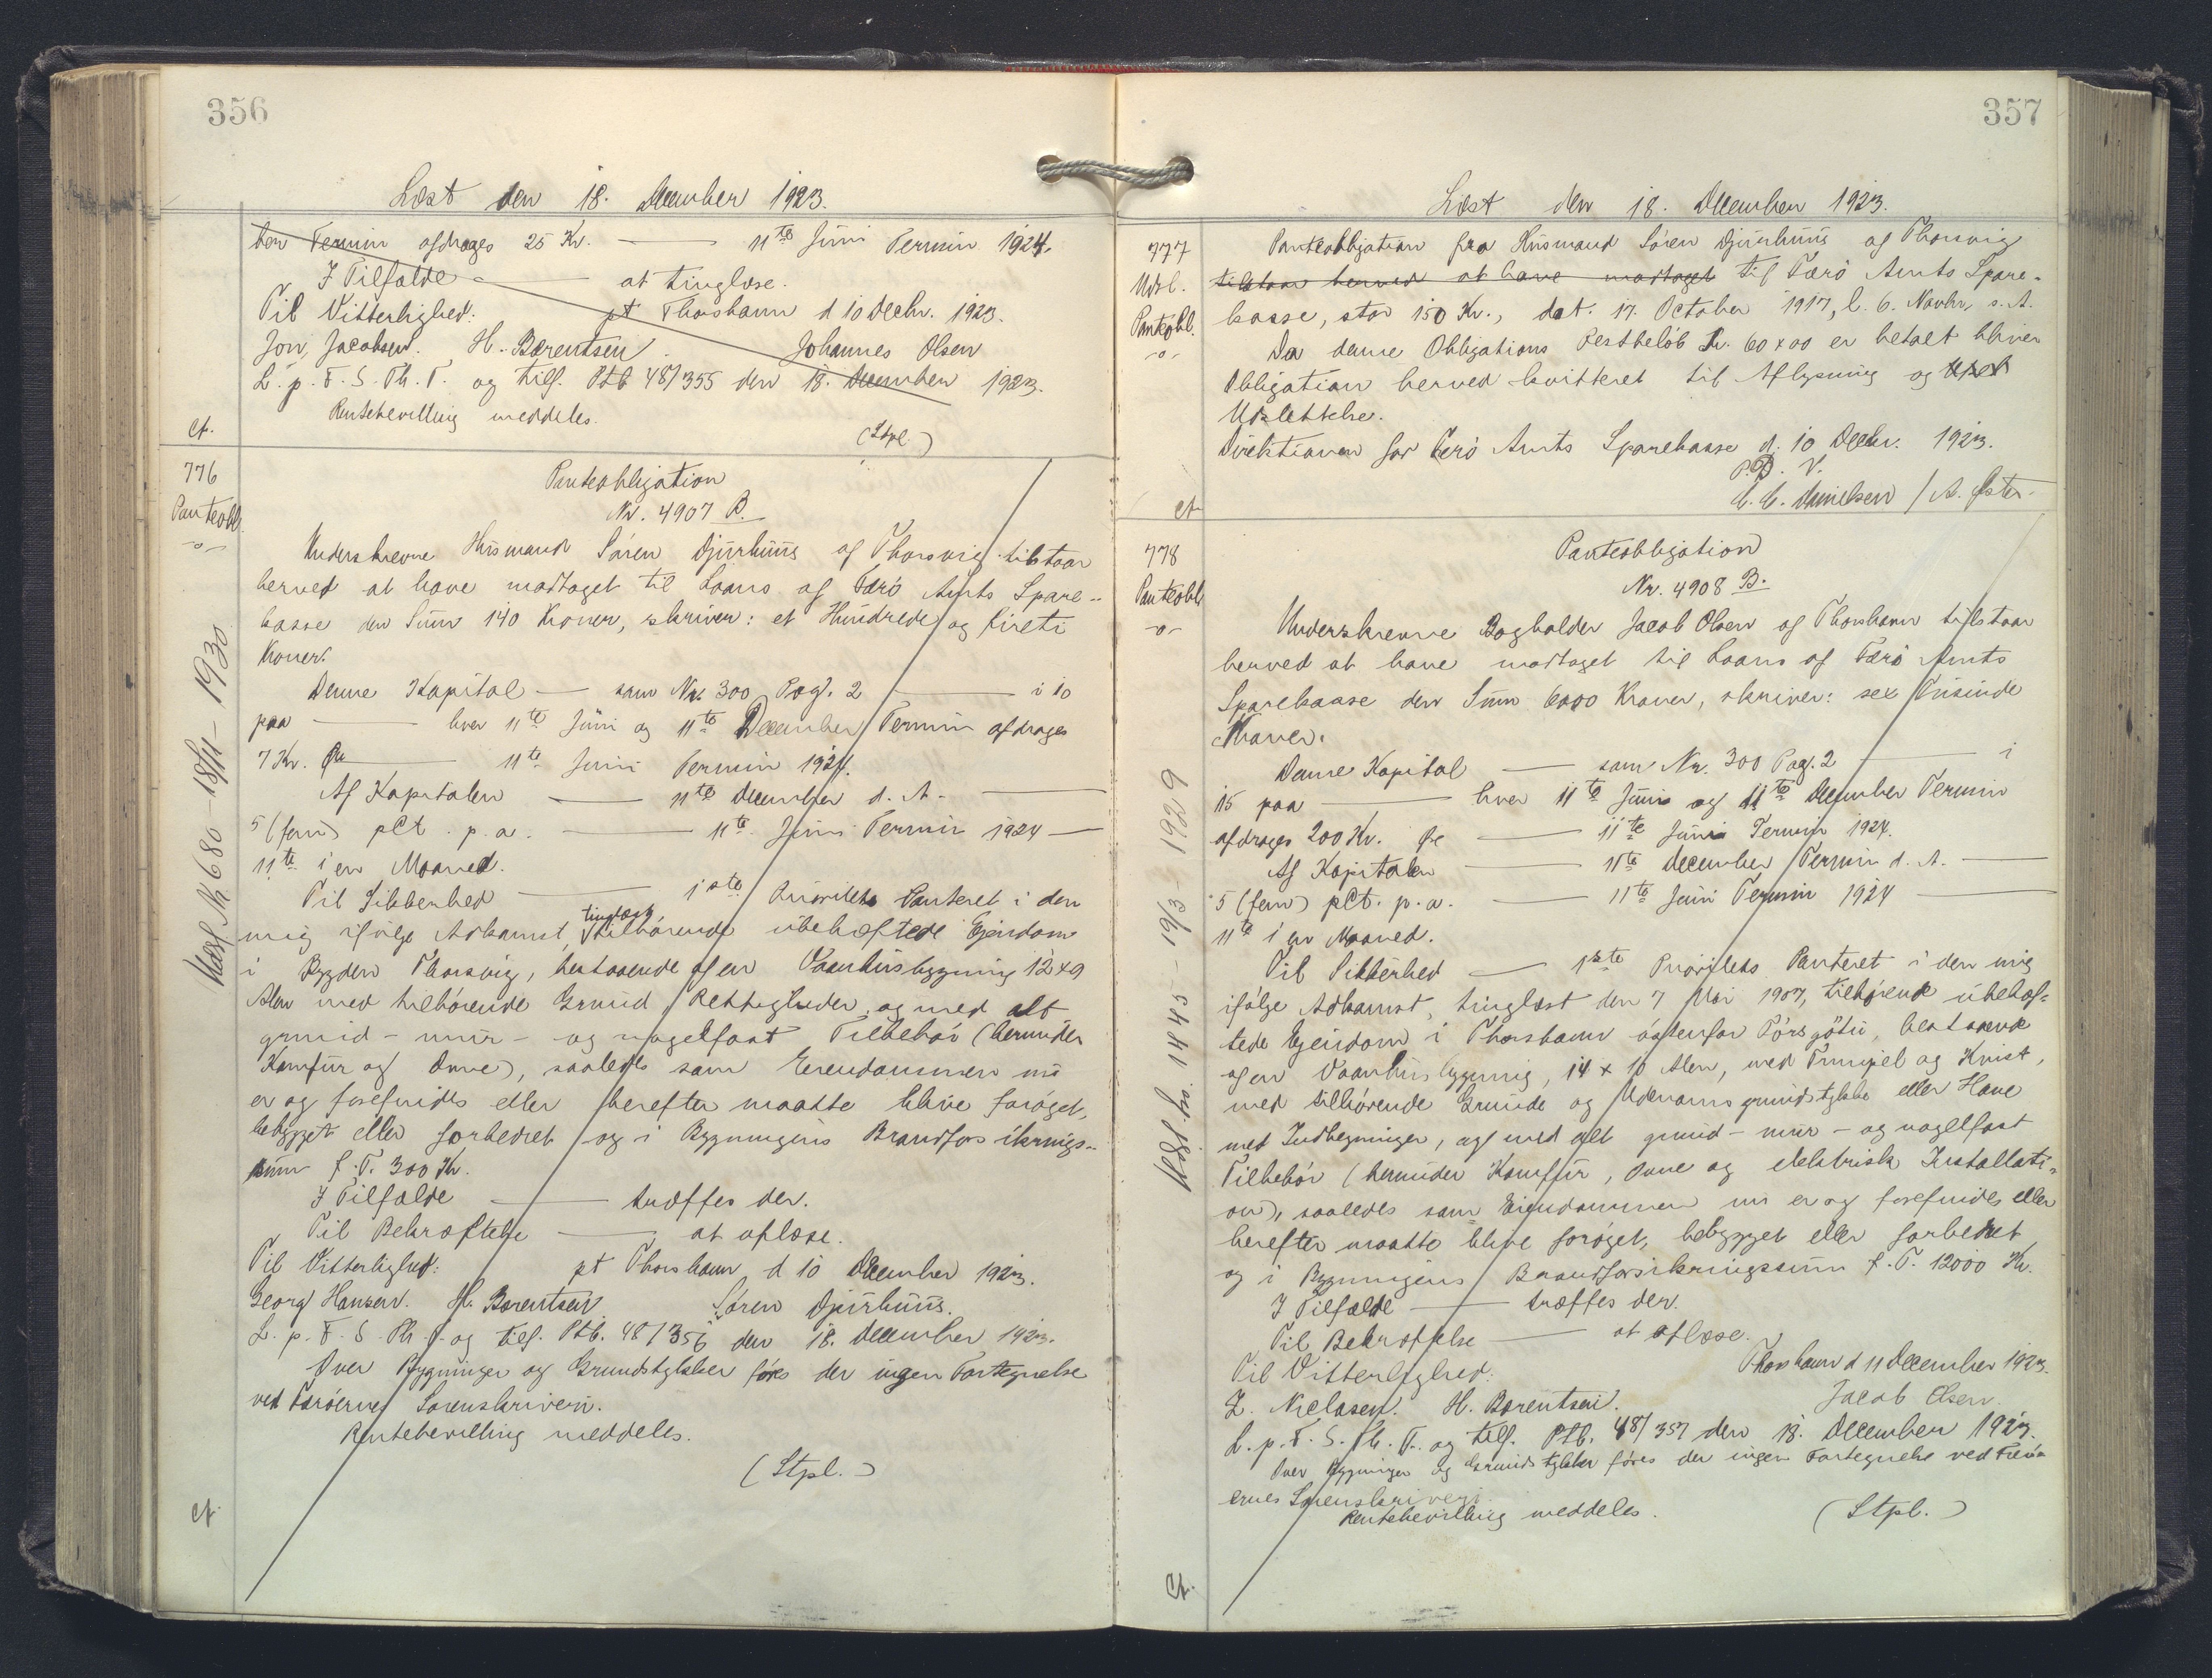 356
Læst den 18. December 1923.
ber Termin afdrages 25 Kr. — 11te Juni Termin 1924.
I Tilfælde — at tinglæse.
Til Vitterlighed: pt Thorshavn d 10 Decbr. 1923.
Jon, Jacobsen. H. Barentsen. Johannes Olsen
L. p. F. S. Th. T. og tilf. Ptb 48/355 den 18. December 1923.
Rentebevilling meddeles.
(Stpl.)
cf.
776
Panteobl.
-o-
Panteobligation
Nr. 4907 B.
Underskrevne Husmand Sören Djurhuus af Thorsvig tilstaar
herved at have modtaget til Laans af Færö Amts Spare-
kasse den Sum 140 Kroner, skriver: et Hundrede og fireti
Kroner.
Denne Kapital — som Nr. 300 Pag. 2 — i 10
paa — hver 11te Juni og 11te December Termin afdrages
7 Kr. — 11te Juni Termin 1924.
Af Kapitalen — 11te December d. A. —
5 (fem) pCt. p. a. — 11te Juni Termin 1924 —
11te i en Maaned.
Til Sikkerhed — 1ste Prioritets Panteret i den
mig ifølge Adkomst, tinglæst tilhörende ubehæftede Ejendom
i Bygden Thorsvig, bestaaende af en Vaanhusbygning 12x9
Alen med tilhörende Grund, Rettigheder og med alt
grund- mur- og nagelfast Tilbehör (herunder
Komfur og Ovne), saaledes som Ejendommen nu
er og forefindes eller herefter maatte blive foröget,
bebygget eller forbedret og i Bygningens Brandforsikrings-
sum f. T. 300 Kr.
I Tilfælde — træffes der.
Til Bekræftelse — at aflæse.
Til Vitterlighed: pt Thorshavn d 10 December 1923.
Georg Hansen. H. Barentsen Sören Djurhuus.
L. p. F. S. Th. T. og tilf. Ptb. 48/356 den 18. December 1923.
Over Bygninger og Grundstykker föres der ingen Fortegnelse
ved Færöernes Sorenskriveri.
Rentebevilling meddeles.
(Stpl.)
cf.
680 - 18/11 - 1930
357
Læst den 18. December 1923.
777
Udsl.
Panteobl.
-o-
Panteobligation fra Husmand Sören Djurhuus af Thorsvig
tilstaar herved at have modtaget til Færö Amts Spare-
kasse, stor 150 Kr., dat. 17. October 1917, l. 6. Novbr. s. A.
Da denne Obligations Restbelöb Kr. 60 x 00 er betalt bliver
Obligation herved kvitteret til Aflysning og
Udslettelse.
Direktionen for Færö Amts Sparekasse d. 10 Decbr. 1923.
P. D. V.
C. C. Danielsen / A.
cf.
778
Panteobl.
-o-
Panteobligation
Nr. 4908 B.
Underskrevne Bogholder Jacob Olsen af Thorshavn tilstaar
herved at have modtaget til Laans af Færö Amts
Sparekasse den Sum 6000 Kroner, skriver: sex Tusinde
Kroner.
Denne Kapital — som Nr. 300 Pag. 2 — i
15 paa — hver 11te Juni og 11te December Termin
afdrages 200 Kr. — 11te Juni Termin 1924.
Af Kapitalen — 11te December Termin d. A. —
5 (fem) pCt. p. a. — 11te Juni Termin 1924 —
11te i en Maaned.
Til Sikkerhed — 1ste Prioritets Panteret i den mig
ifölge Adkomst, tinglæst den 7 Mai 1907, tilhörende ubehæf-
tede Ejendom i Thorshavn östenfor Tórsgötu, bestaaende
af en Vaanhusbygning, 14 x 10 Alen, med Trempel og Kvist,
med tilhörende Grunde og Udenomsgrundstykke eller Have
med Indhegninger, og med alt grund- mur- og nagelfast
Tilbehör (herunder Komfur, Ovne og elektrisk Installati-
on), saaledes som Ejendommen nu er og forefindes eller
herefter maatte blive foröget, bebygget eller forbedret
og i Bygningens Brandforsikringssum f. T. 12000 Kr.
I Tilfælde — træffes der.
Til Bekræftelse — at aflæse.
Til Vitterlighed: Thorshavn d 11 December 1923.
Z. Niclasen. H. Barentsen. Jacob Olsen
L. p. F. S. Th. T. og tilf. Ptb. 48/357 den 18. December 1923.
Over Bygninger og Grundstykker föres der ingen Fortegnelse ved Færö-
ernes Sorenskriveri.
Rentebevilling meddeles. (Stpl.)
cf.
1145 - 19/3 - 1929